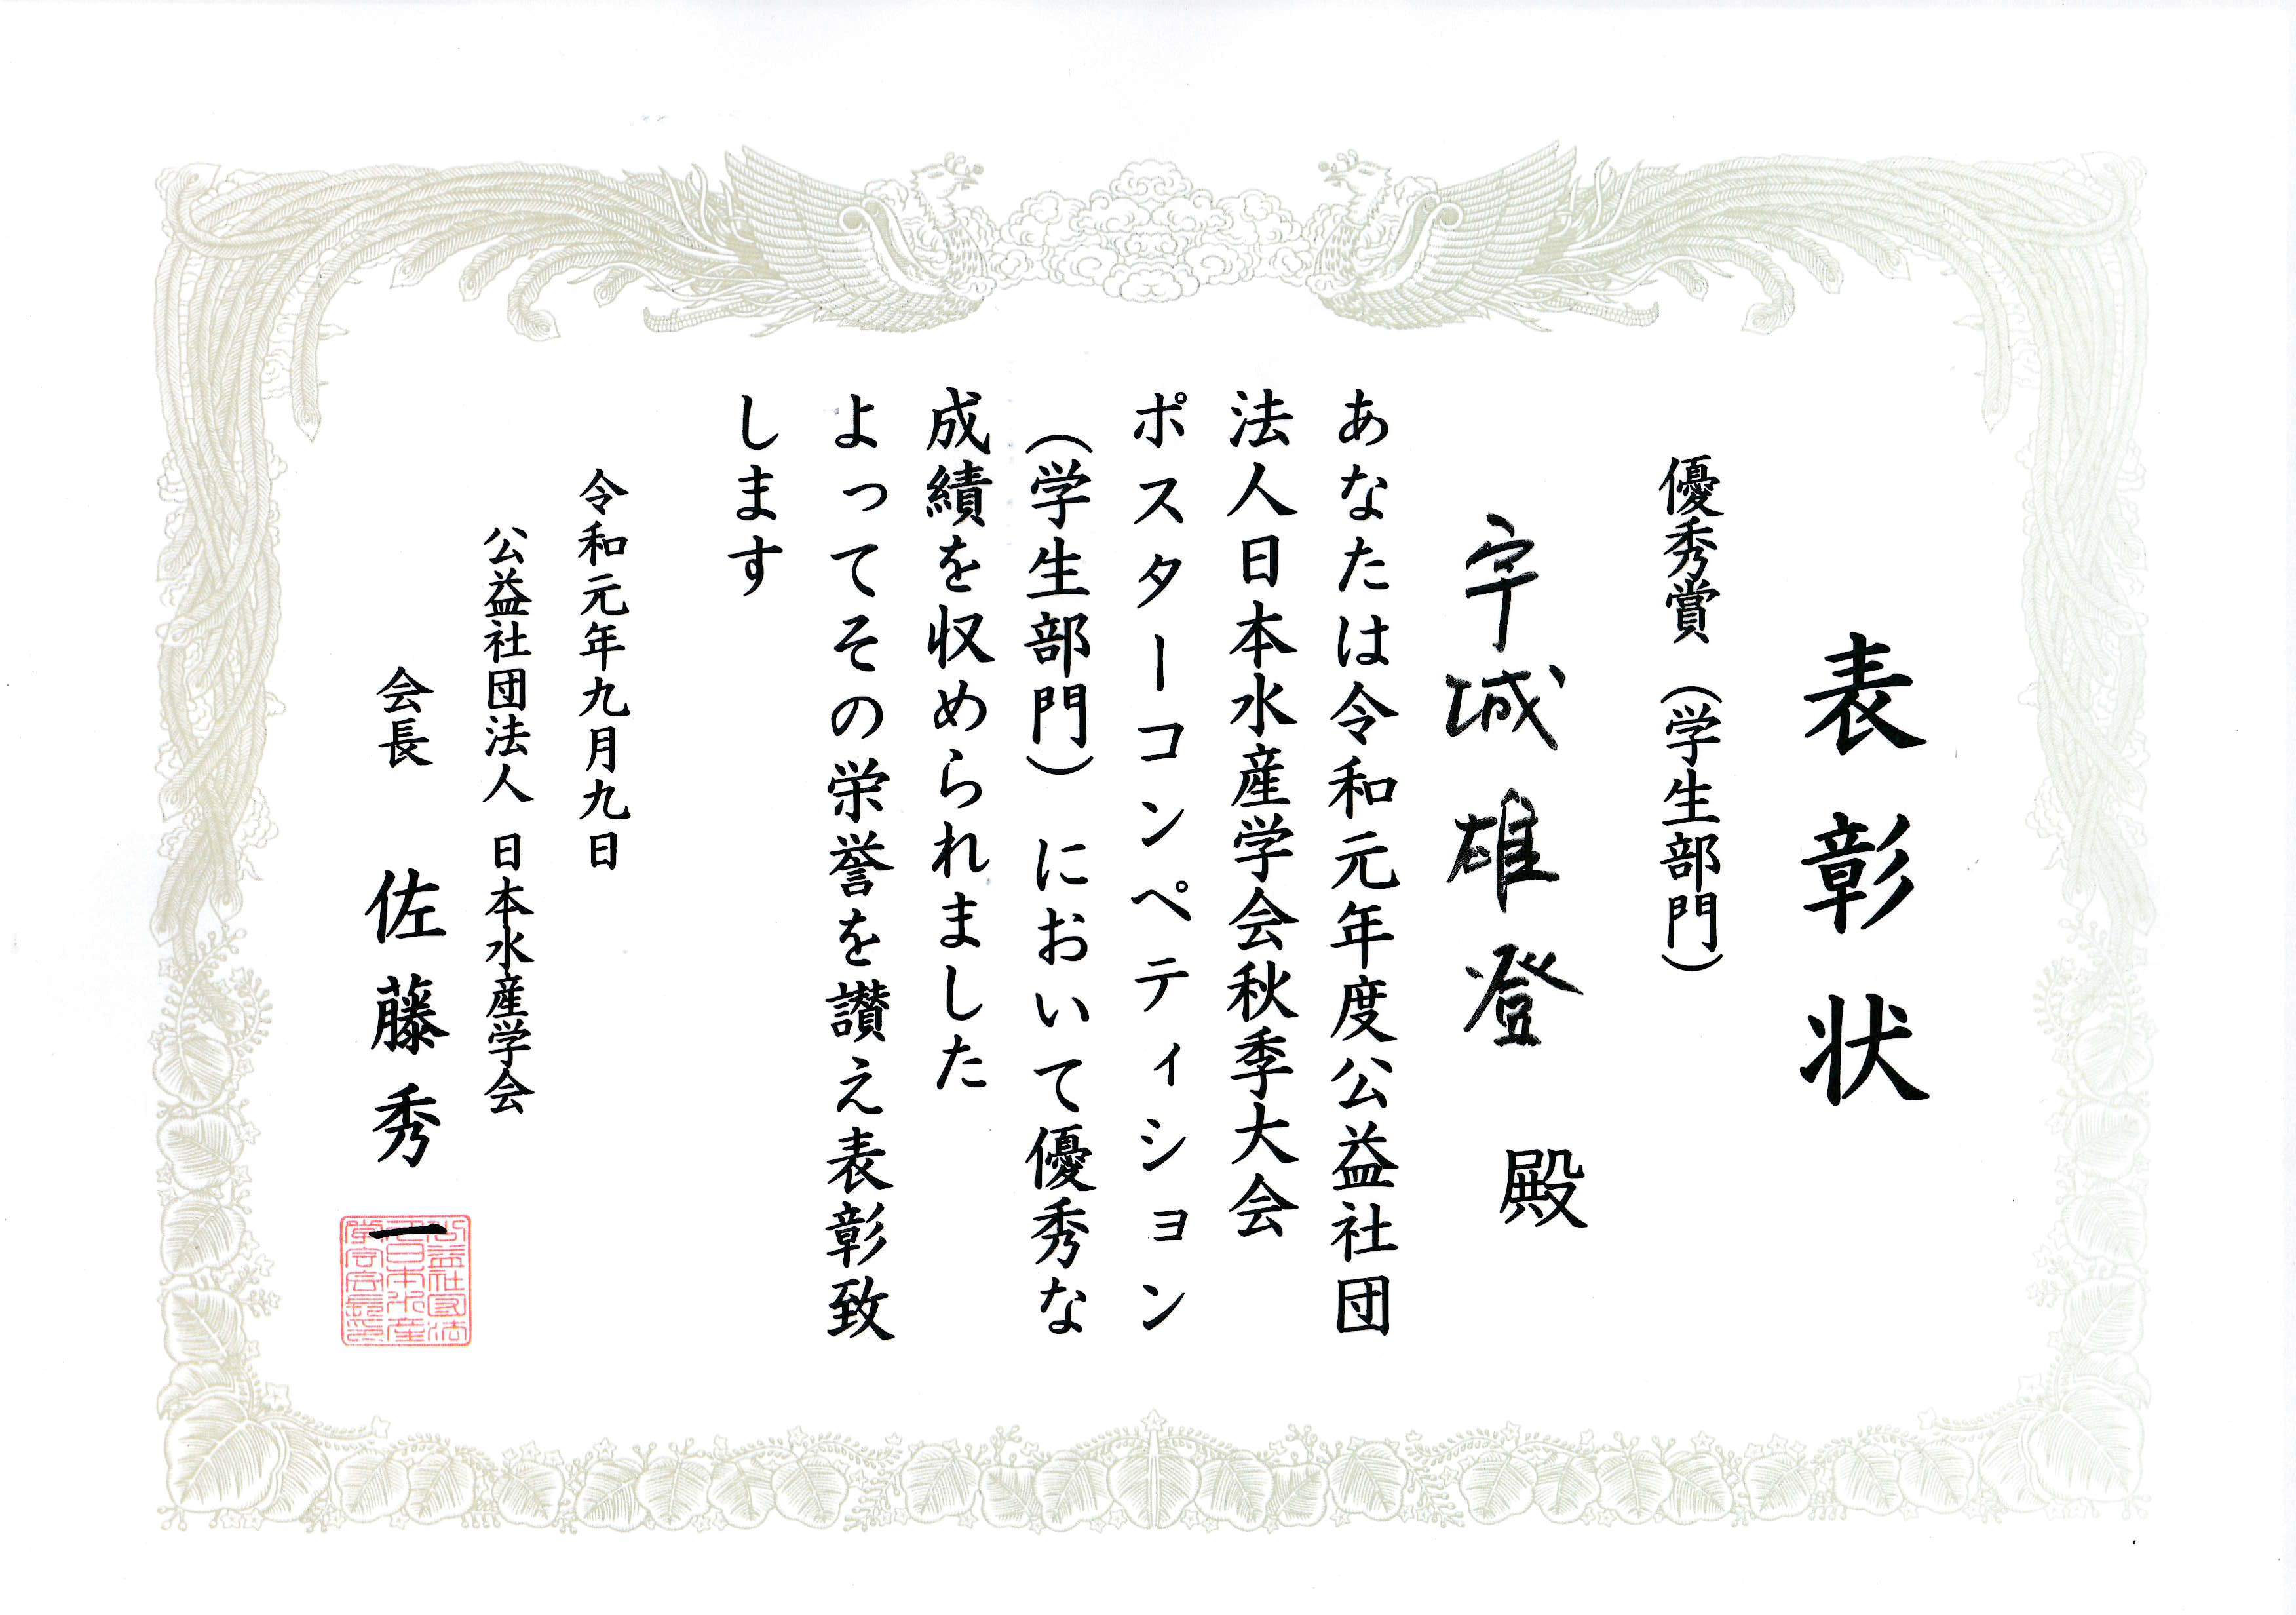 表彰状
優秀賞（学生部門）
宇城雄登 殿
あなたは令和元年度公益社団
法人日本水産学会秋季大会
ポスターコンペティション
（学生部門）において優秀な
成績を収められました
よってその栄誉を讃え表彰致
します
令和元年九月九日
公益社団法人 日本水産学会
会長 佐藤秀一
公益社団法
人日本水産
学会会長印